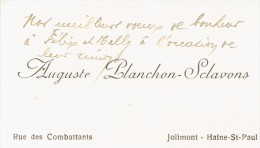 Nos meilleurs voeux de bonheur
à Félix et Nelly à l'occasion de
leur union
Auguste Planchon-Sclavons
Rue des Combattants
Jolimont - Haine-St-Paul